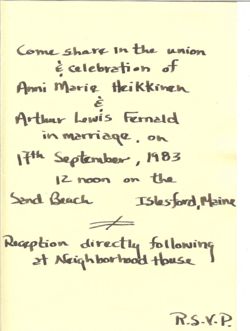 Come share in the union
& celebration of
Anni Marie Heikkinen
&
Arthur Lewis Fernald
in marriage, on
17th September, 1983
12 noon on the
Sand Beach Islesford, Maine
Reception directly following
at Neighborhood House
R.S.V.P.